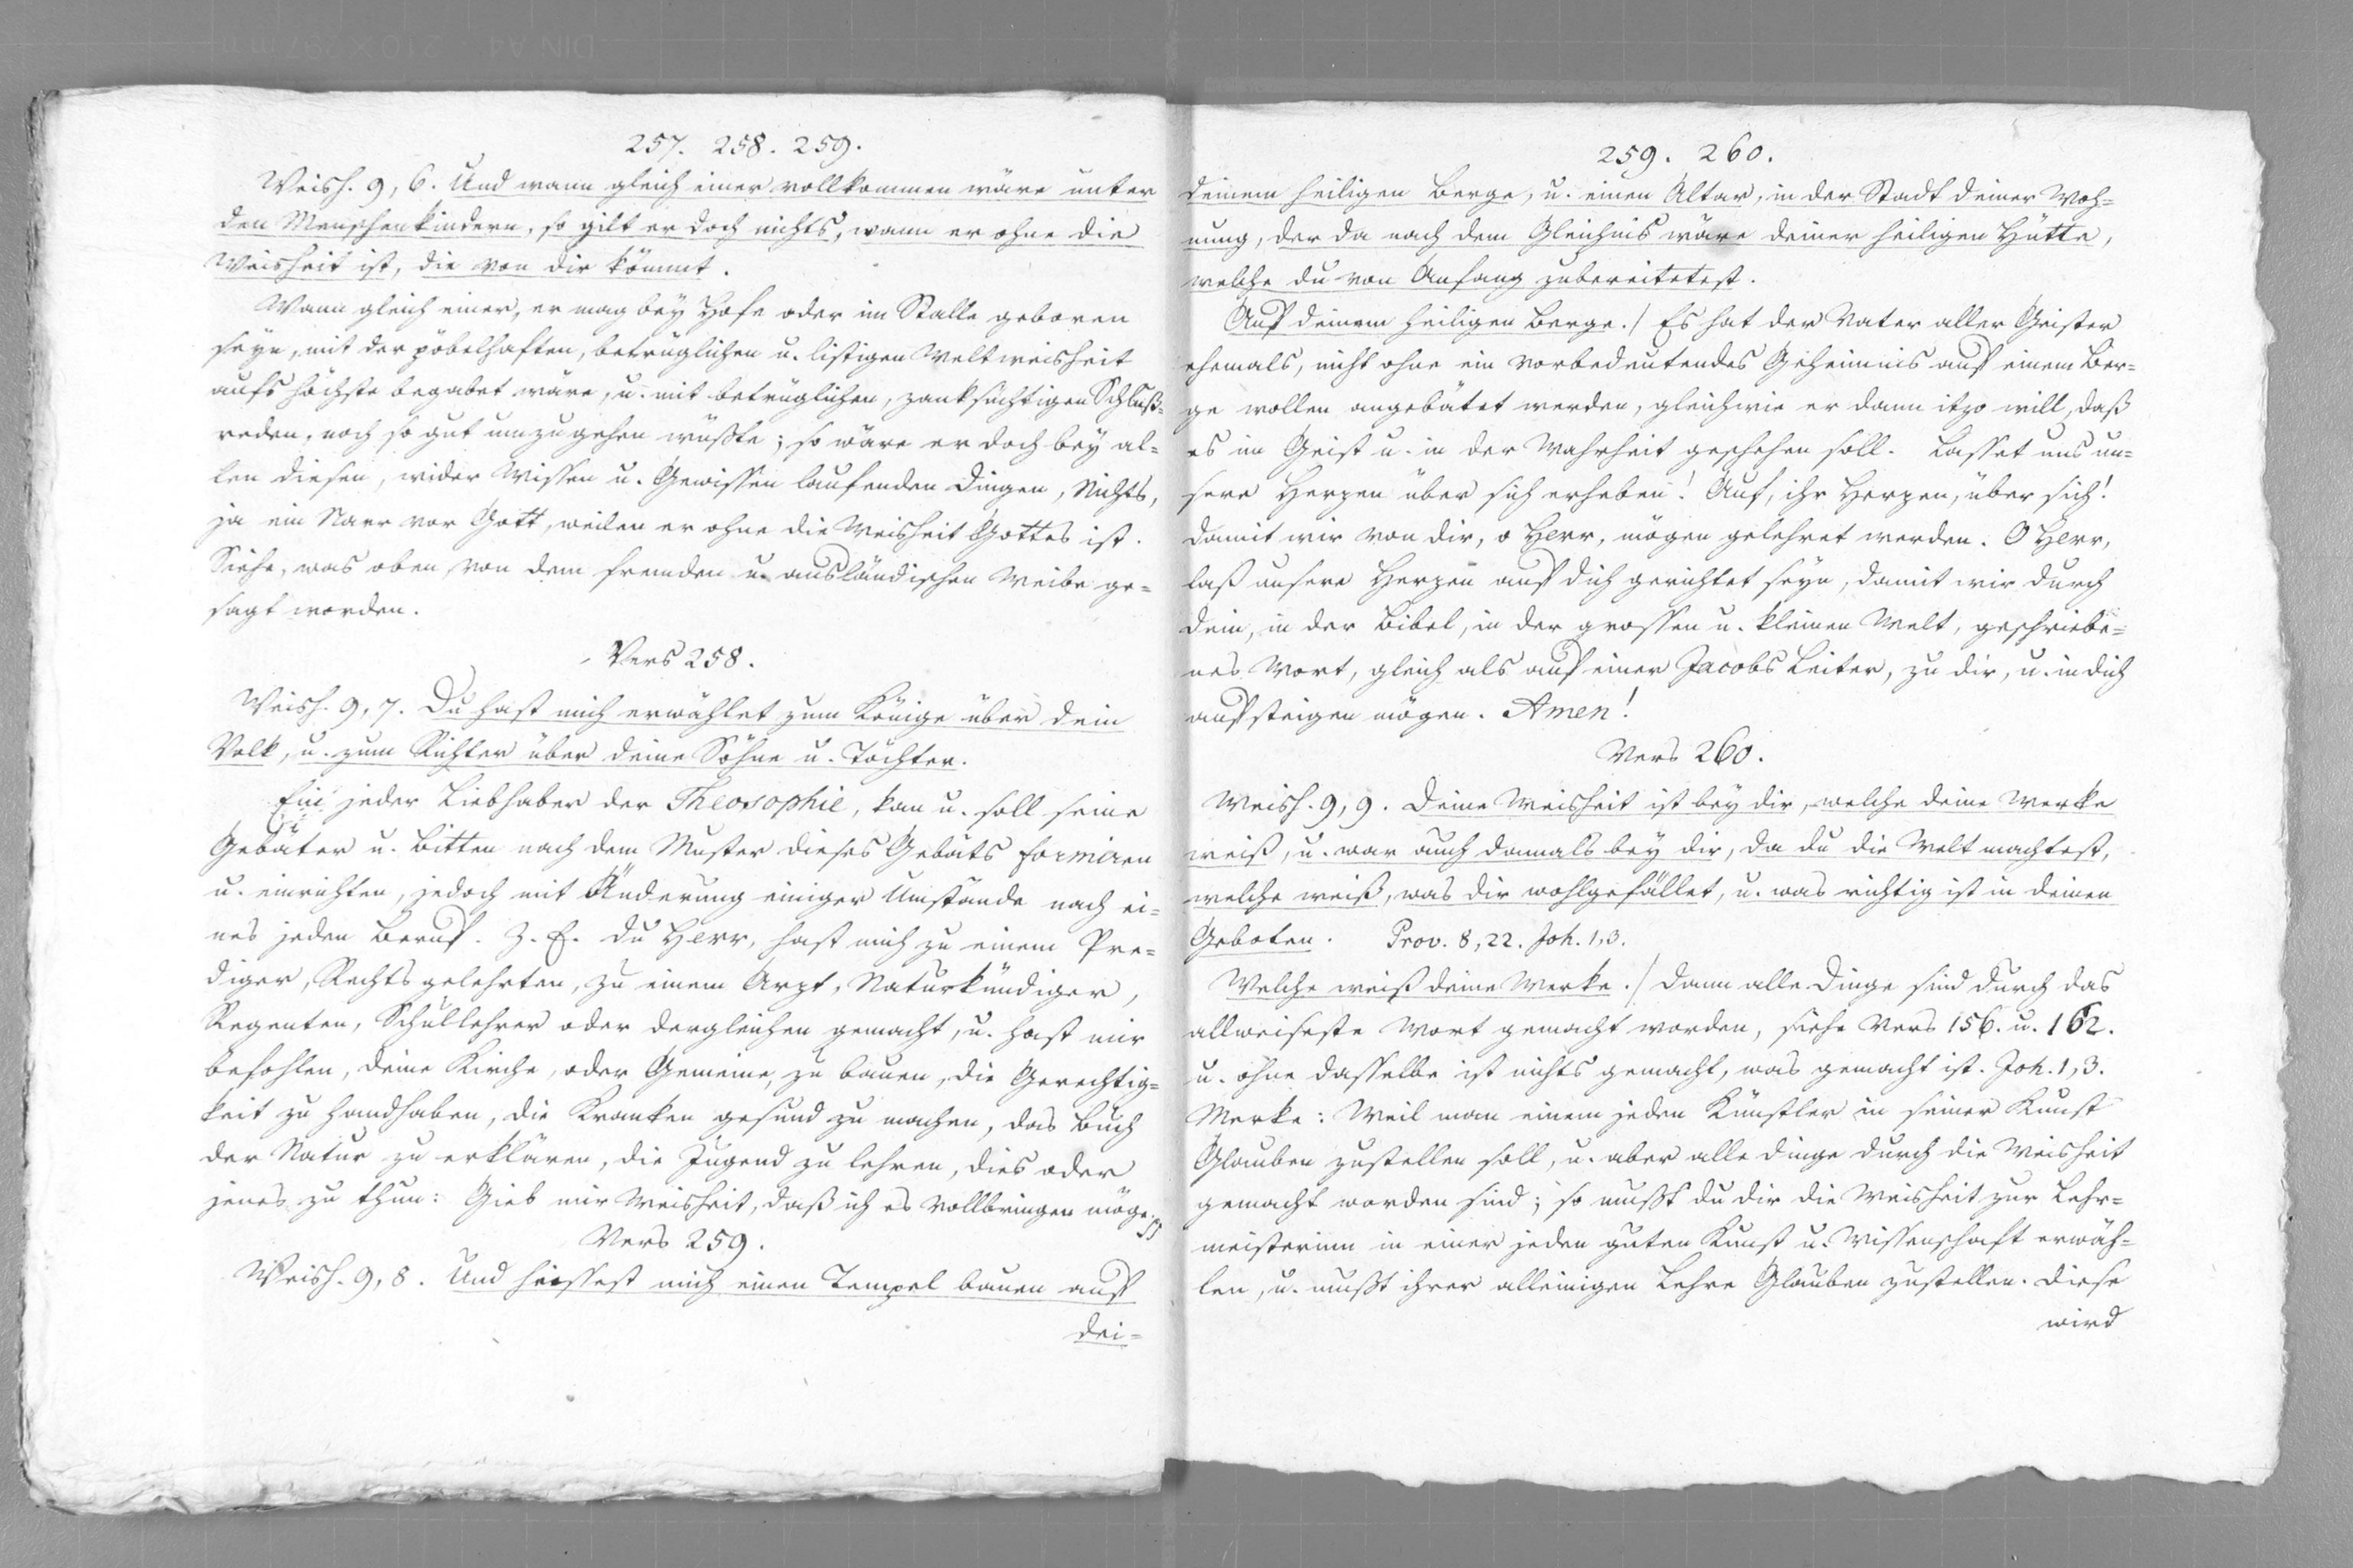 257. 258. 259.
Weish. 9, 6. Und wann gleich einer vollkommen wäre unter
den Menschenkindern, so gilt er doch nichts, wann er ohne die
Weisheit ist, die von dir kömmt.
Wann gleich einer, er mag bey Hofe oder im Stalle geboren
seyn, mit der pöbelhaften, betrüglichen u. listigen Weltweisheit
aufs höchste begabet wäre, u. mit betrüglichen, zanksüchtigen Schluß=
reden, noch so gut umzugehen wüßte; so wäre er doch bey al=
len diesen, wider Wissen u. Gewissen laufenden Dingen, Nichts,
ja ein Narr vor Gott, weilen er ohne die Weisheit Gottes ist.
Siehe, was oben von dem fremden u. ausländischen Weibe ge=
sagt worden.
Vers 258.
Weish. 9, 7. Du hast mich erwählet zum Könige über dein
Volk, u. zum Richter über deine Söhne u. Töchter.
Ein jeder Liebhaber der Theosophie, kan u. soll seine
Gebäter u. Bitten nach dem Muster dieses Gebäts formiren
u. einrichten, jedoch mit Änderung einiger Umstände nach ei=
nes jeden Beruf. Z. E. du Herr, hast mich zu einem Pre=
diger, Rechtsgelehrten, zu einem Arzt, Naturkündiger,
Regenten, Schullehrer oder dergleichen gemacht, u. hast mir
befohlen, deine Kirche, oder Gemeine, zu bauen, die Gerechtig=
keit zu handhaben, die Kranken gesund zu machen, das Buch
der Natur zu erklären, die Jugend zu lehren, dies oder
jenes zu thun: Gieb mir Weisheit, daß ich es vollbringen möge.
Vers 259.
Weish. 9, 8. Und hiessest mich einen Tempel bauen auf
dei=
259. 260.
deinem heiligen Berge, u. einen Altar, in der Stadt deiner Woh=
nung, der da nach dem Gleichnis wäre deiner heiligen Hütte,
welche du von Anfang zubereitetest.
Auf deinem heiligen Berge./ Es hat der Vater aller Geister
ehemals, nicht ohne ein vorbedeutendes Geheimnis auf einem Ber=
ge wollen angebätet werden, gleichwie er dann itzo will, daß
es im Geist u. in der Wahrheit geschehen soll. Lasset uns un=
sere Herzen über sich erheben! Auf, ihr Herzen, über sich!
damit wir von dir, o Herr, mögen gelehret werden. O Herr,
laß unsere Herzen auf dich gerichtet seyn, damit wir durch
dein, in der Bibel, in der grossen u. kleinen Welt, geschriebe=
nes Wort, gleich als auf einer Jacobs Leiter, zu dir, u. in dich
aufsteigen mögen. Amen!
Vers 260.
Weish. 9, 9. Deine Weisheit ist bey dir, welche deine Werke
weiß, u. war auch damals bey dir, da du die Welt machtest,
welche weiß, was dir wohlgefället, u. was richtig ist in deinen
Geboten. Prov. 8, 22. Joh. 1, 3.
Welche weiß deine Werke./ Dann alle Dinge sind durch das
allweiseste Wort gemacht worden, siehe Vers 156. u. 162.
u. ohne dasselbe ist nichts gemacht, was gemacht ist. Joh. 1, 3.
Merke: Weil man einem jeden Künstler in seiner Kunst
Glauben zustellen soll, u. aber alle Dinge durch die Weisheit
gemacht worden sind; so mußt du dir die Weisheit zur Lehr=
meisterinn in einer jeden guten Kunst u. Wissenschaft erwäh=
len, u. mußt ihrer alleinigen Lehre Glauben zustellen. Diese
wird